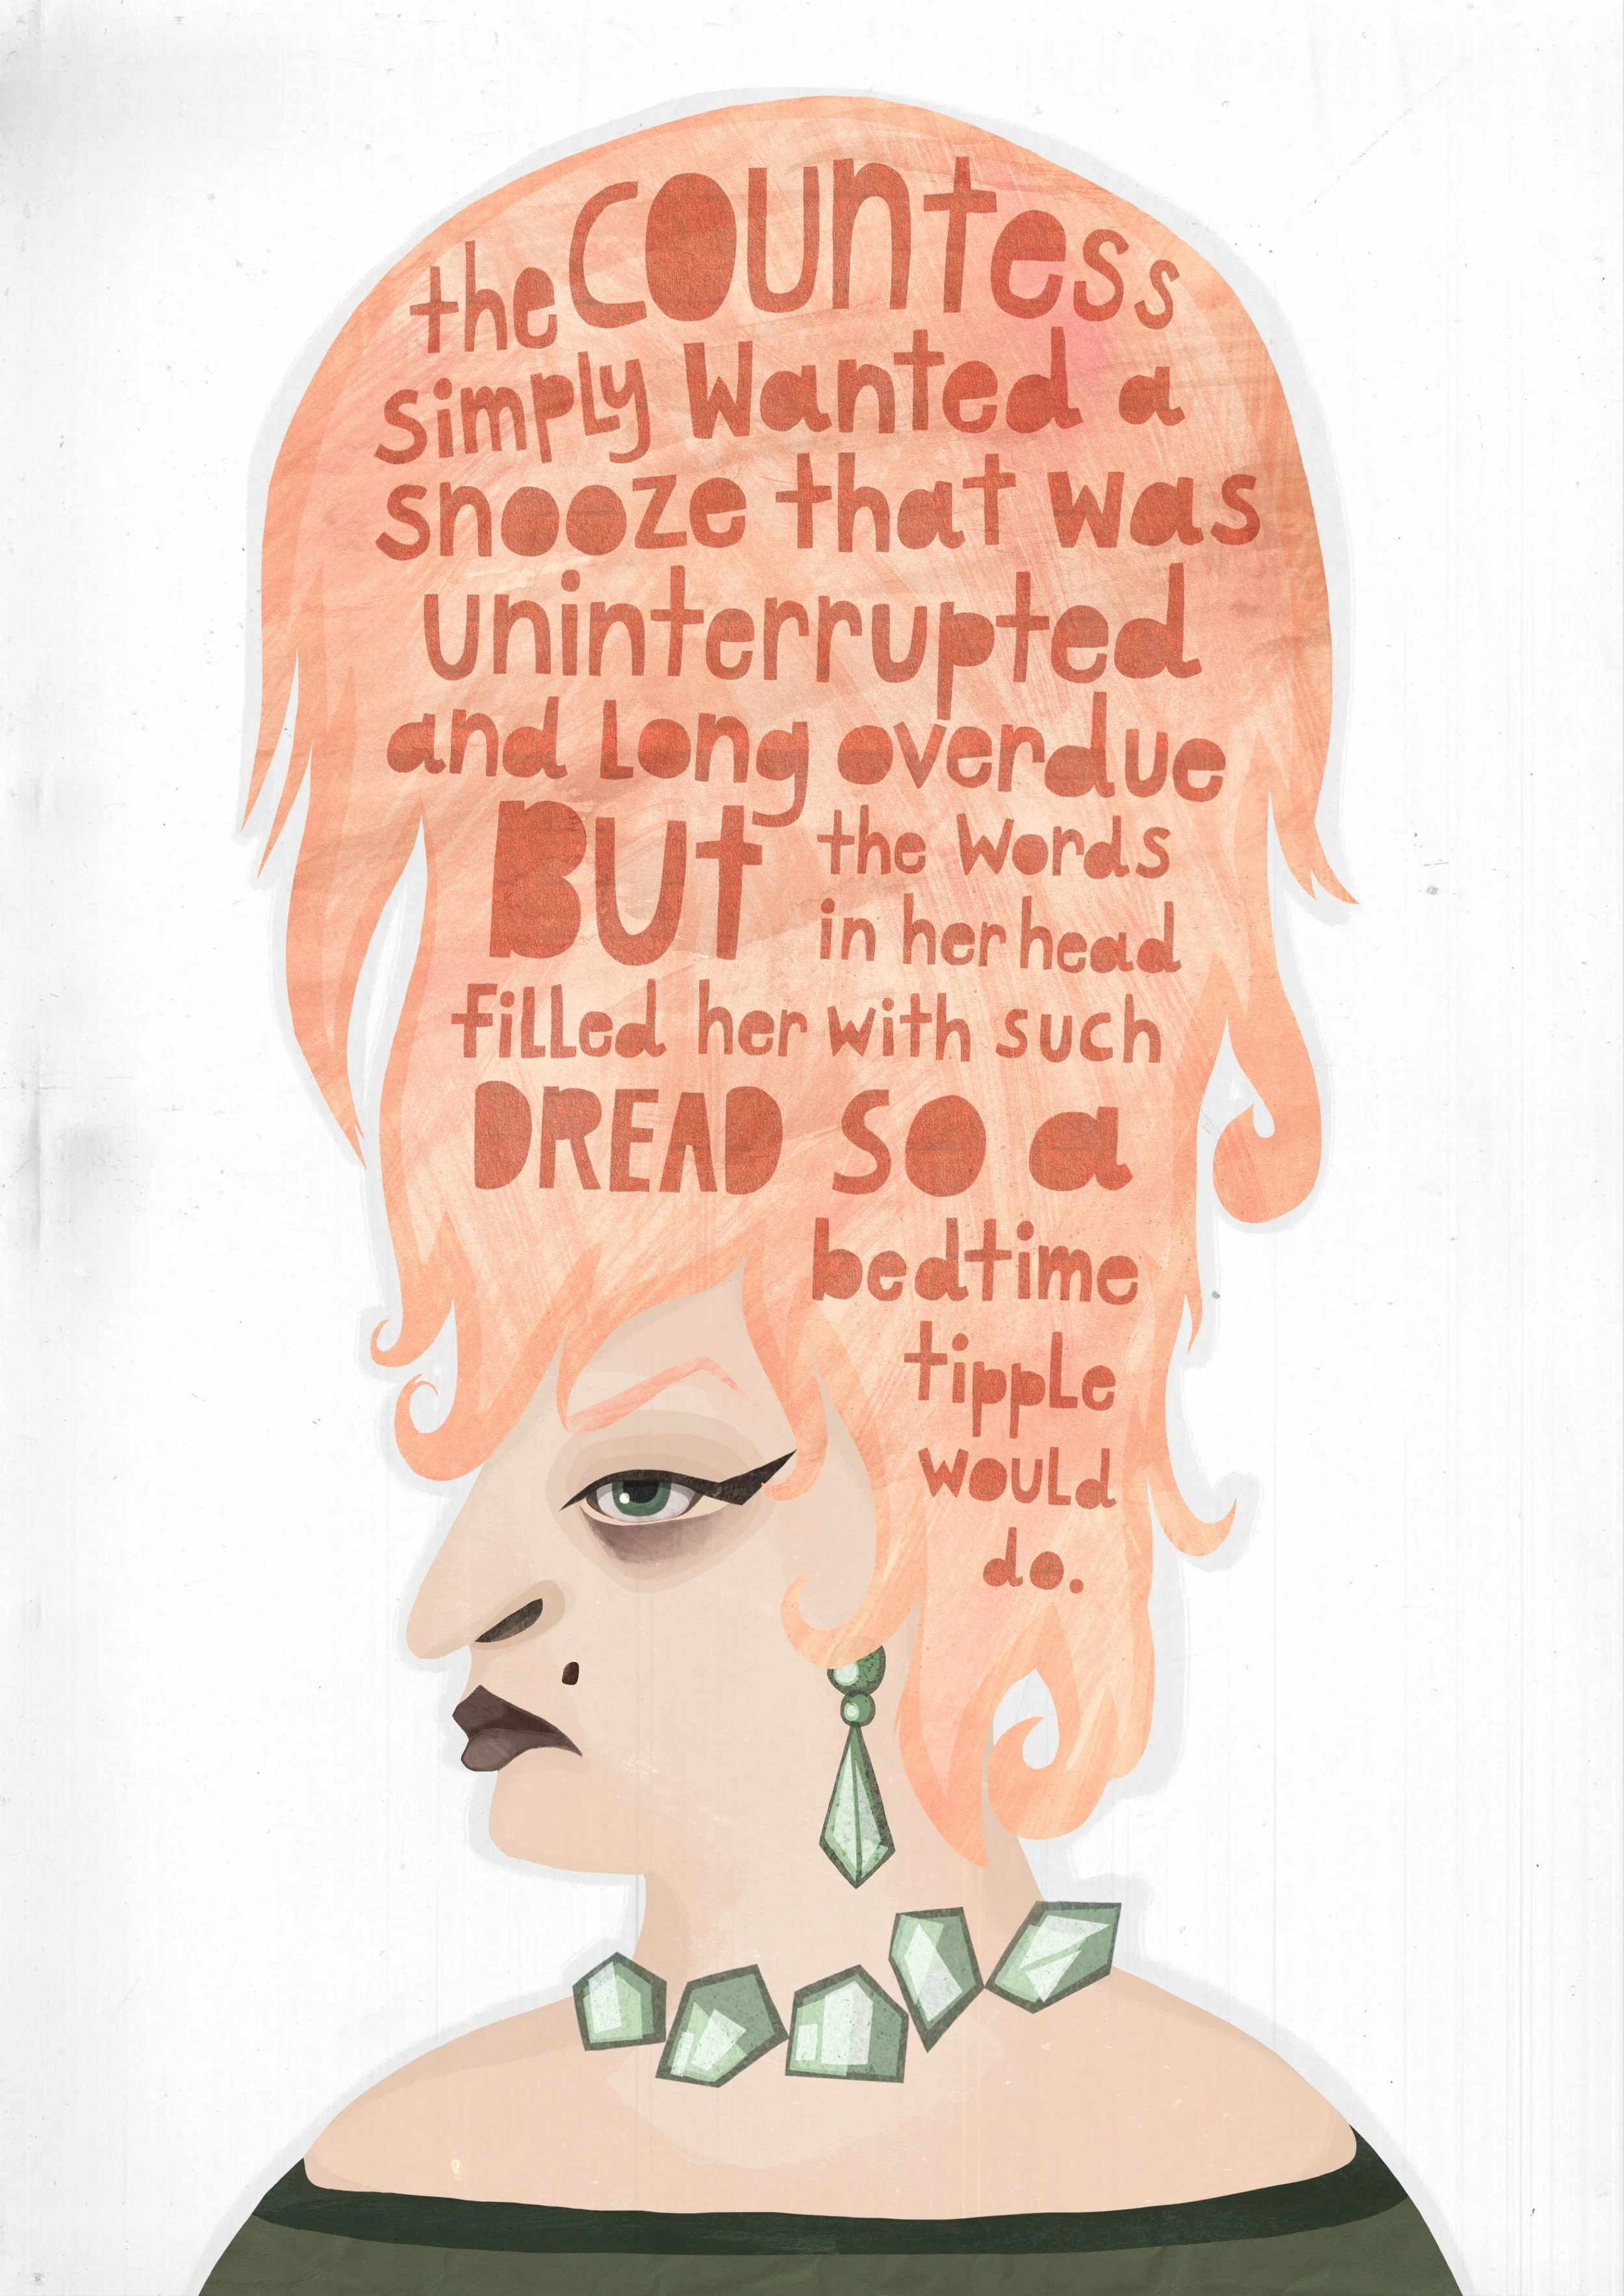 the COUNTESS
simply Wanted a
snooze that was
uninterrupted
and Long overdue
BUT the Words
in her head
filled her with such
DREAD so a
bedtime
tipple
would
do.